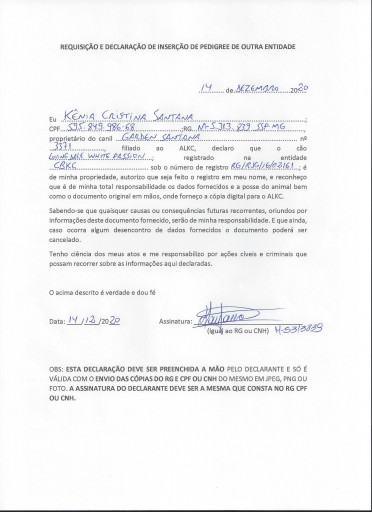 REQUISIÇÃO E DECLARAÇÃO DE INSERÇÃO DE PEDIGREE DE OUTRA ENTIDADE
14 de DEZEMBRO 2020
Eu KÊNIA CRISTINA SANTANA;
CPF 595.849.986-68 ;RG M-5.313.839 SSP-MG,
proprietário do canil GARDEN SANTANA nº
3371, filiado ao ALKC, declaro que o cão
WHITE PASSION, registrado na entidade
CBKC sob o número de registro é
de minha propriedade, autorizo que seja feito o registro em meu nome, e reconheço
que é de minha total responsabilidade os dados fornecidos e a posse do animal bem
como o documento original em mãos, onde forneço a cópia digital para o ALKC.
Sabendo-se que quaisquer causas ou consequências futuras recorrentes, oriundos por
informações deste documento fornecido, serão de minha responsabilidade. E que ainda,
caso ocorra algum desencontro de dados fornecidos o documento poderá ser
cancelado.
Tenho ciência dos meus atos e me responsabilizo por ações cíveis e criminais que
possam recorrer sobre as informações aqui declaradas.
O acima descrito é verdade e dou fé
Data: 14/12/2020 Assinatura:
(Igual ao RG ou CNH) M-5313839
OBS: ESTA DECLARAÇÃO DEVE SER PREENCHIDA A MÃO PELO DECLARANTE E SÓ É
VÁLIDA COM O ENVIO DAS CÓPIAS DO RG E CPF OU CNH DO MESMO EM JPEG, PNG OU
FOTO. A ASSINATURA DO DECLARANTE DEVE SER A MESMA QUE CONSTA NO RG CPF
OU CNH.